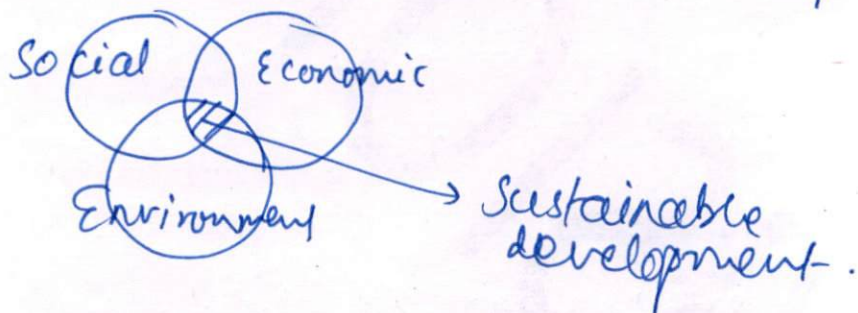 Social
Economic
Environment
Sustainable
development.